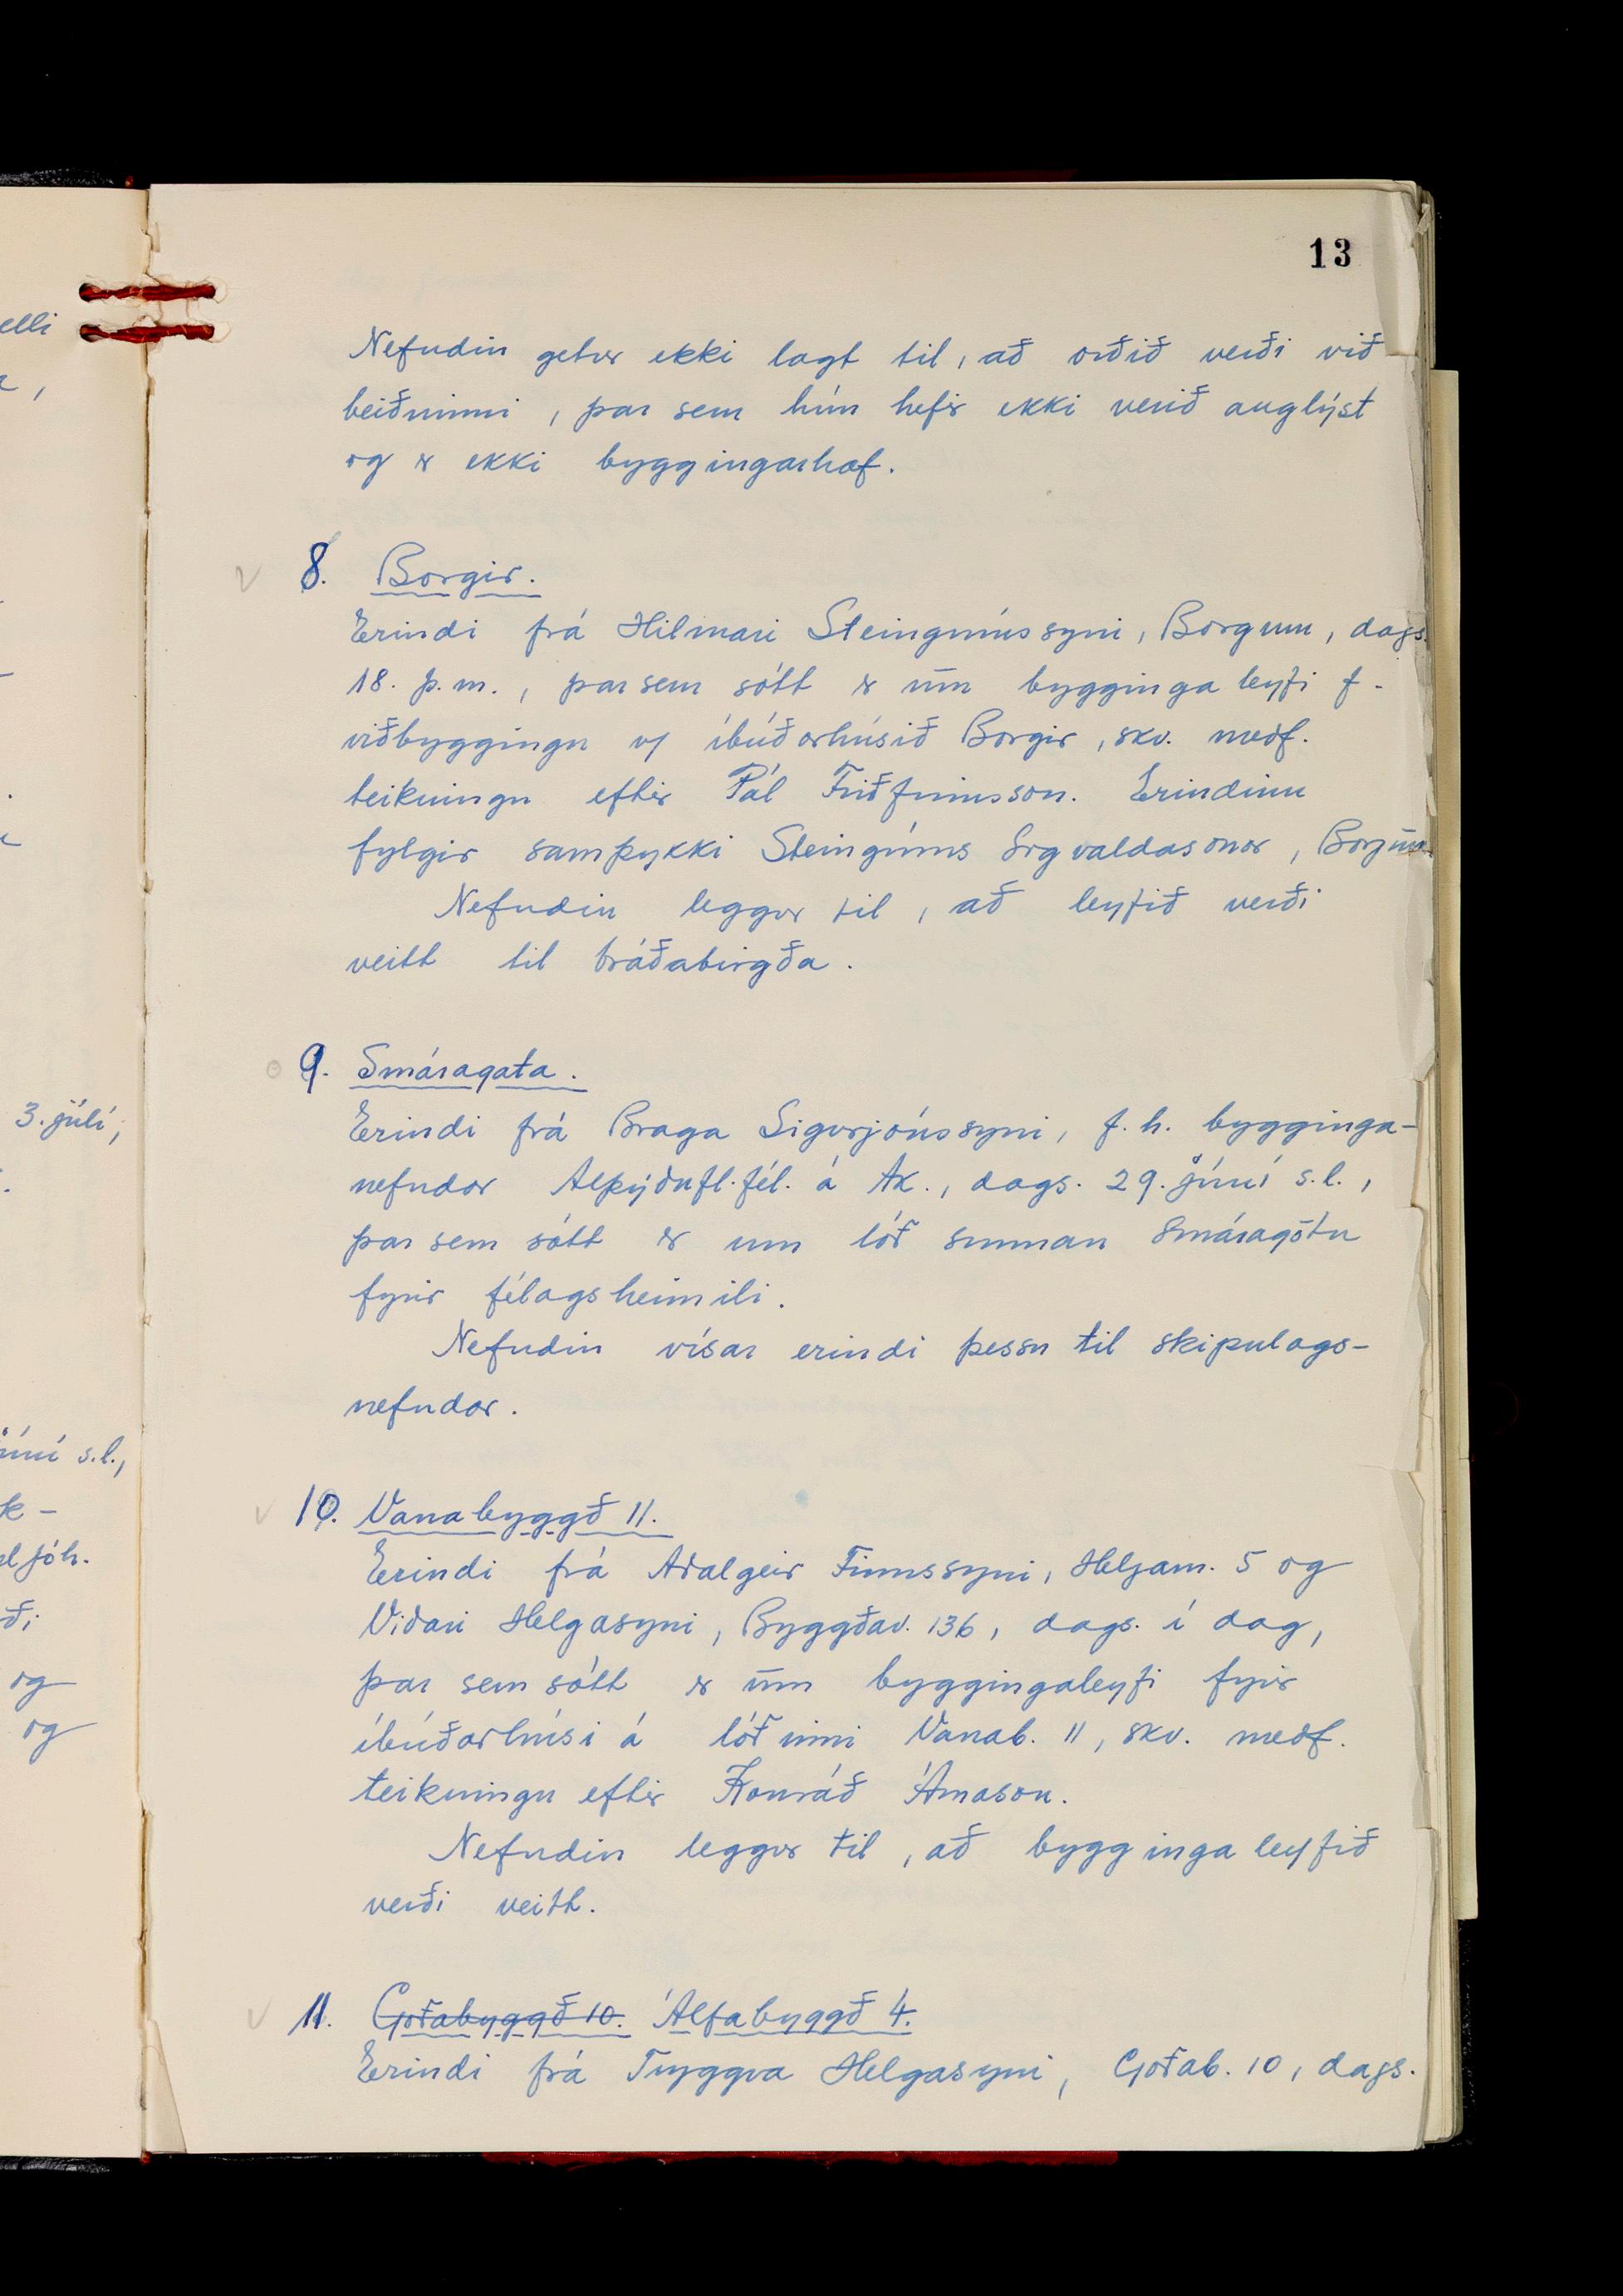 13
Nefndin getur ekki lagt til, að orðið verði við
beiðninni, þar sem hún hefir ekki verið auglýst
og er ekki byggingarhæf.
8. Borgir.
Erindi frá Hilmari Steingrímssyni, Borgum, dags.
18. þ.m., þar sem sótt er um byggingaleyfi f.
viðbyggingu v/ íbúðarhúsið Borgir, skv. meðf.
teikningu eftir Pál Friðfinnsson. Erindinu
fylgir samþykki Steingríms Sigvaldasonar, Borgum.
Nefndin leggur til, að leyfið verði
veitt til bráðabirgða.
9. Smáragata.
Erindi frá Braga Sigurjónssyni, f.h. bygginga-
nefndar Alþýðufl.fél. á Ak., dags. 29. júní s.l.,
þar sem sótt er um lóð sunnan Smáragötu
fyrir félagsheimili.
Nefndin vísar erindi þessu til skipulags-
nefndar.
10. Vanabyggð 11.
Erindi frá Aðalgeir Finnssyni, Helgam. 5 og
Viðari Helgasyni, Byggðav. 136, dags. í dag,
þar sem sótt er um byggingaleyfi fyrir
íbúðarhúsi á lóðinni Vanab. 11, skv. meðf.
teikningu eftir Konráð Árnason.
Nefndin leggur til, að byggingaleyfið
verði veitt.
11. Goðabyggð 10. Álfabyggð 4.
Erindi frá Tryggva Helgasyni, Goðab. 10, dags.
elli
3. júlí,
júní s.l.,
k-
Jóh.
ði
og
og